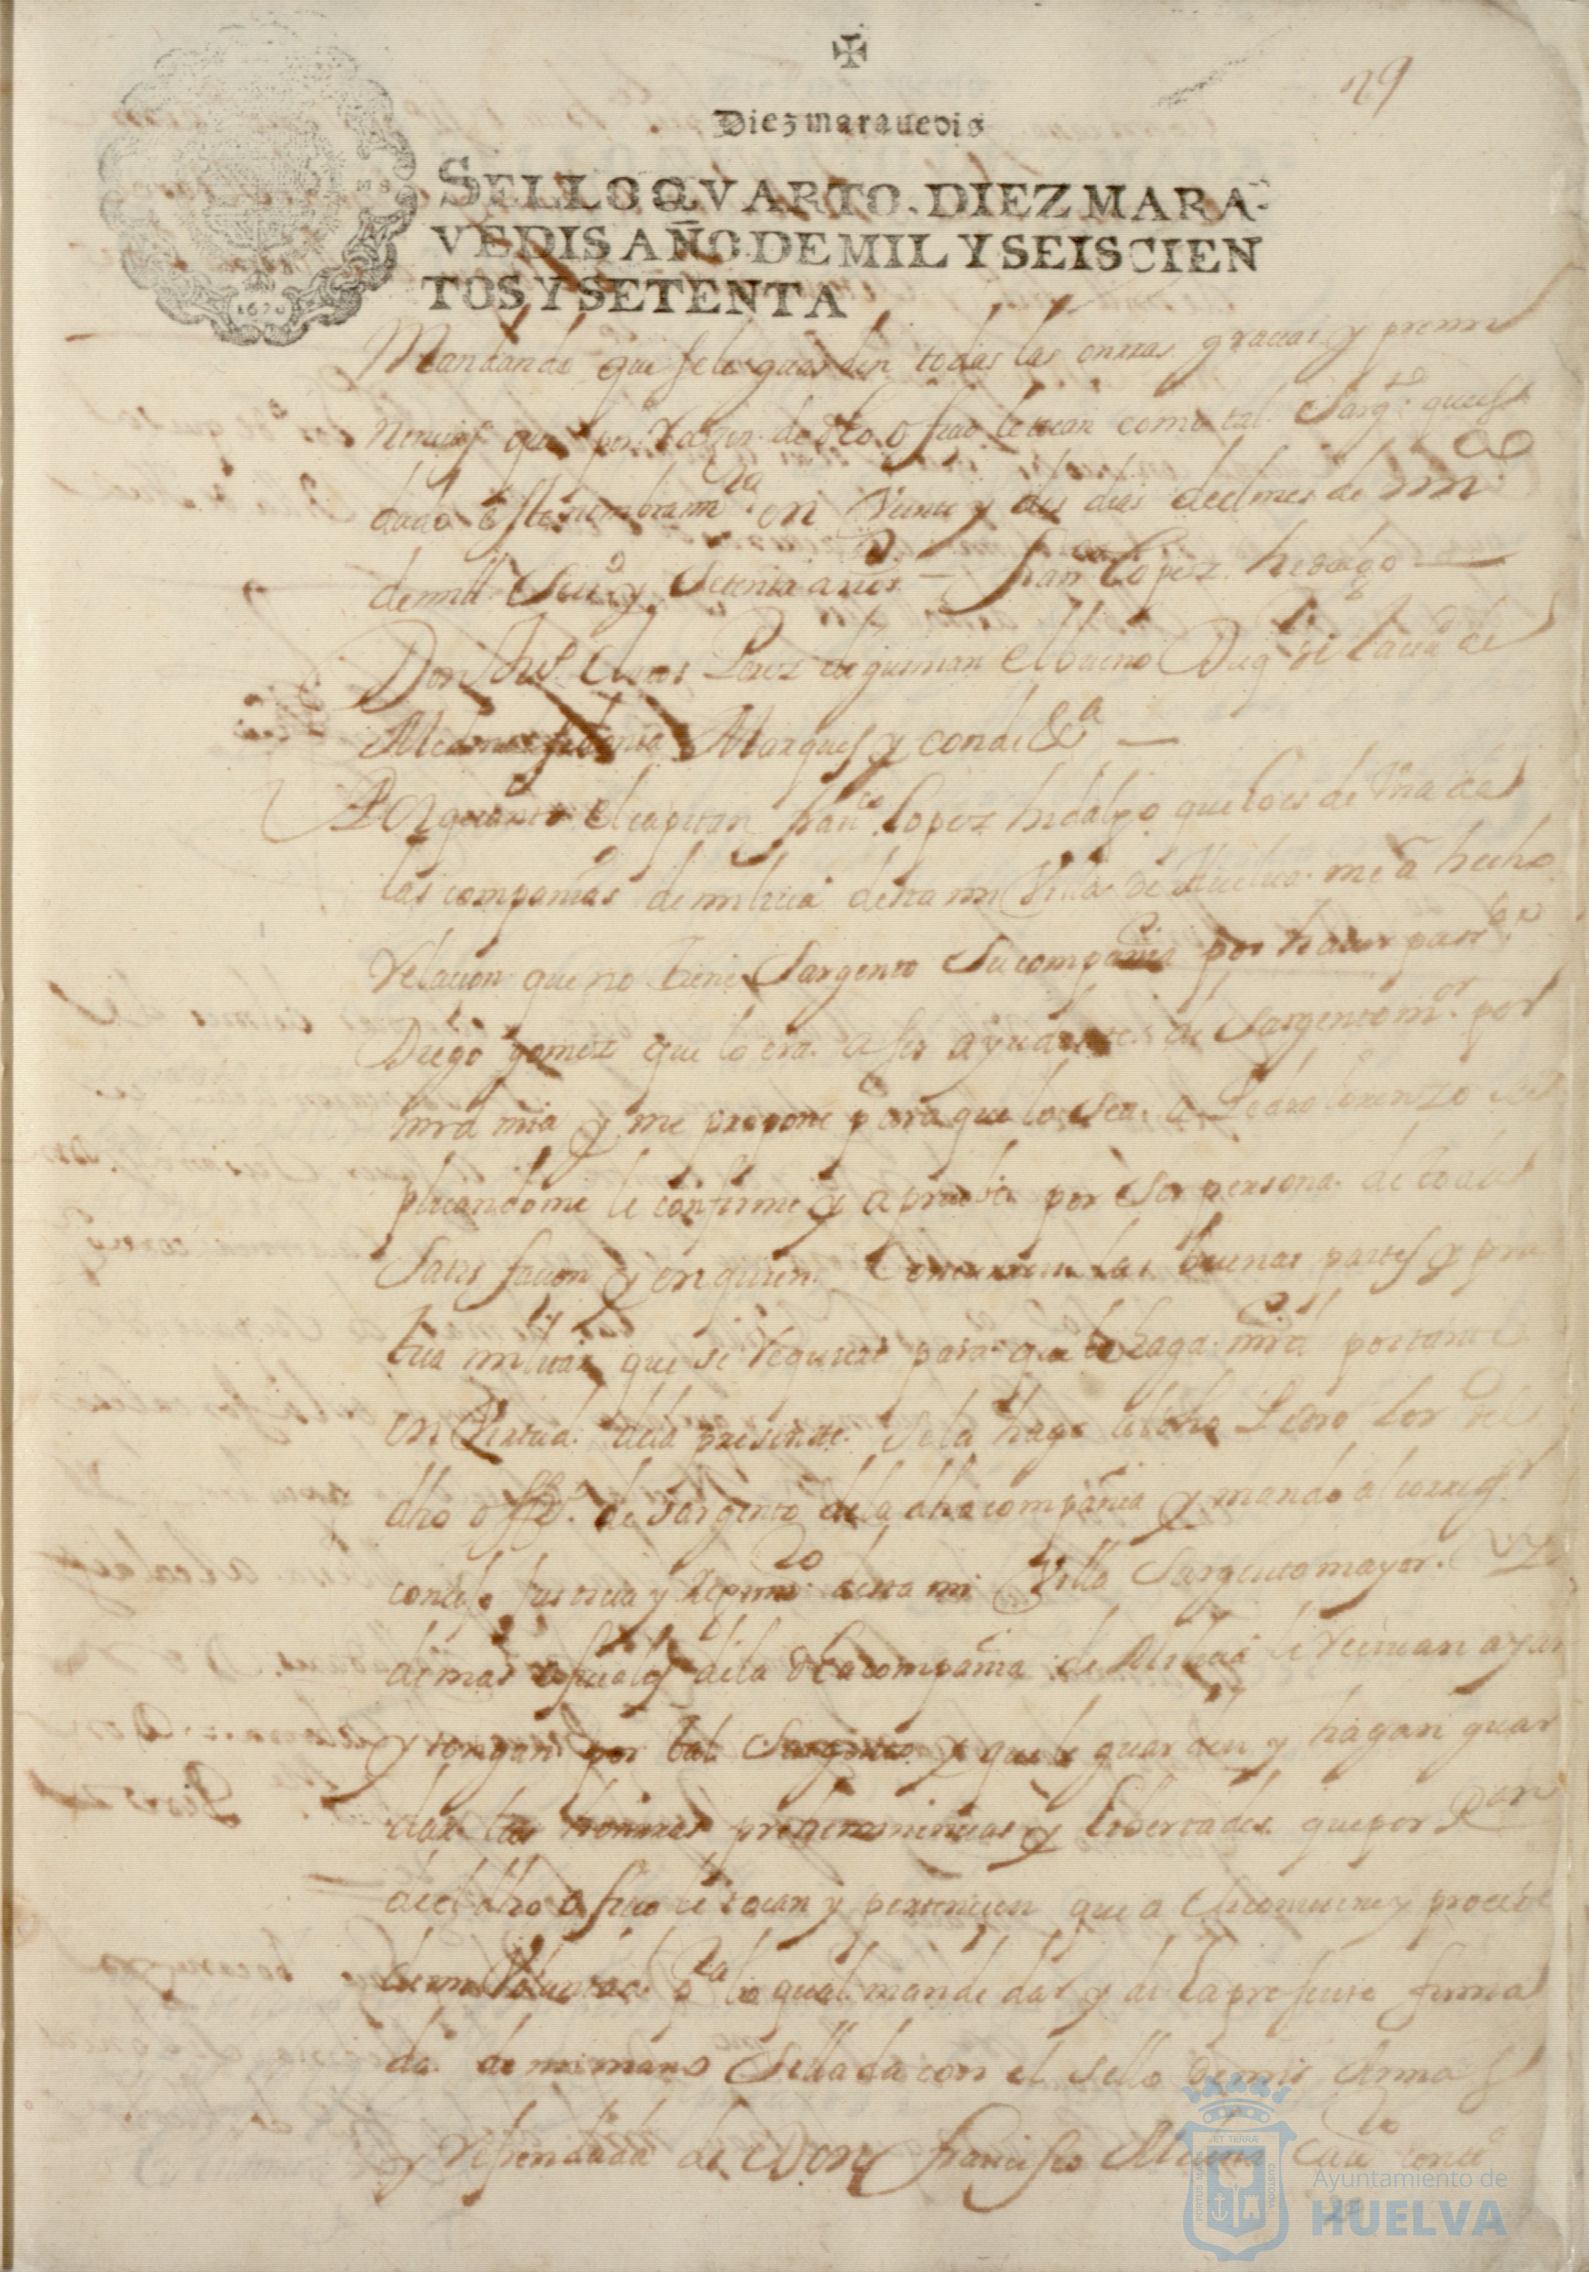 29
Diez maravedis
SELLO QVARTO. DIEZ MARA-
VEDIS AÑO DE MIL Y SEISCIEN
TOS Y SETENTA
1670
Mandando que se le guarden todas las onrras gracias y preimi
nencias que por Razon de dho ofiçio le tocan como tal Sargto. que es
dado este nombramto. en Veinte y dos dias del mes de
de mil Seisos. y Setenta años — franco. Lopez hidalgo —
Don Perez de guzman el bueno Duq de la ciud de
Medina sidonia Marques y conde &a —
Por quanto el capitan franco. Lopez hidalgo que lo es de Vna de
las compañias de milicia desta mi Villa de Huelva me a hecho
relacion que no tiene Sargento Su compañia por haver pasado
Diego gomez que lo era a ser ayudante de Sargento mor. por
mrd mia y me propone para que lo sea a Pedro lorenzo su
plicandome le confirme y apruebe por Ser persona de toda
Satisfacion y en quien Concurren las buenas partes y pra
tica militar que se requiere para que le haga mrd por tanto
en Virtud de la presente Se la hago al dho Pedro Lor del
dho offo. de Sargento de la dha compañia y mando al corregor
concejo Justicia y Regimto. desta mi Villa Sargento mayor y
demas ofiçiales de la dha compañia de Milicia le reciuan ayan
y tengan por tal Sargento y que le guarden y hagan guar
dar las honrras preheminencias y libertades que por Raçon
del dho ofiçio le tocan y pertenecen que a si conuiene y procede
de mi Voluntad pa. lo qual mande dar y di la presente firma
da de mi mano Sellada con el sello de mis Armas
y refrendada de Don Francisco
Ayuntamiento de
HUELVA